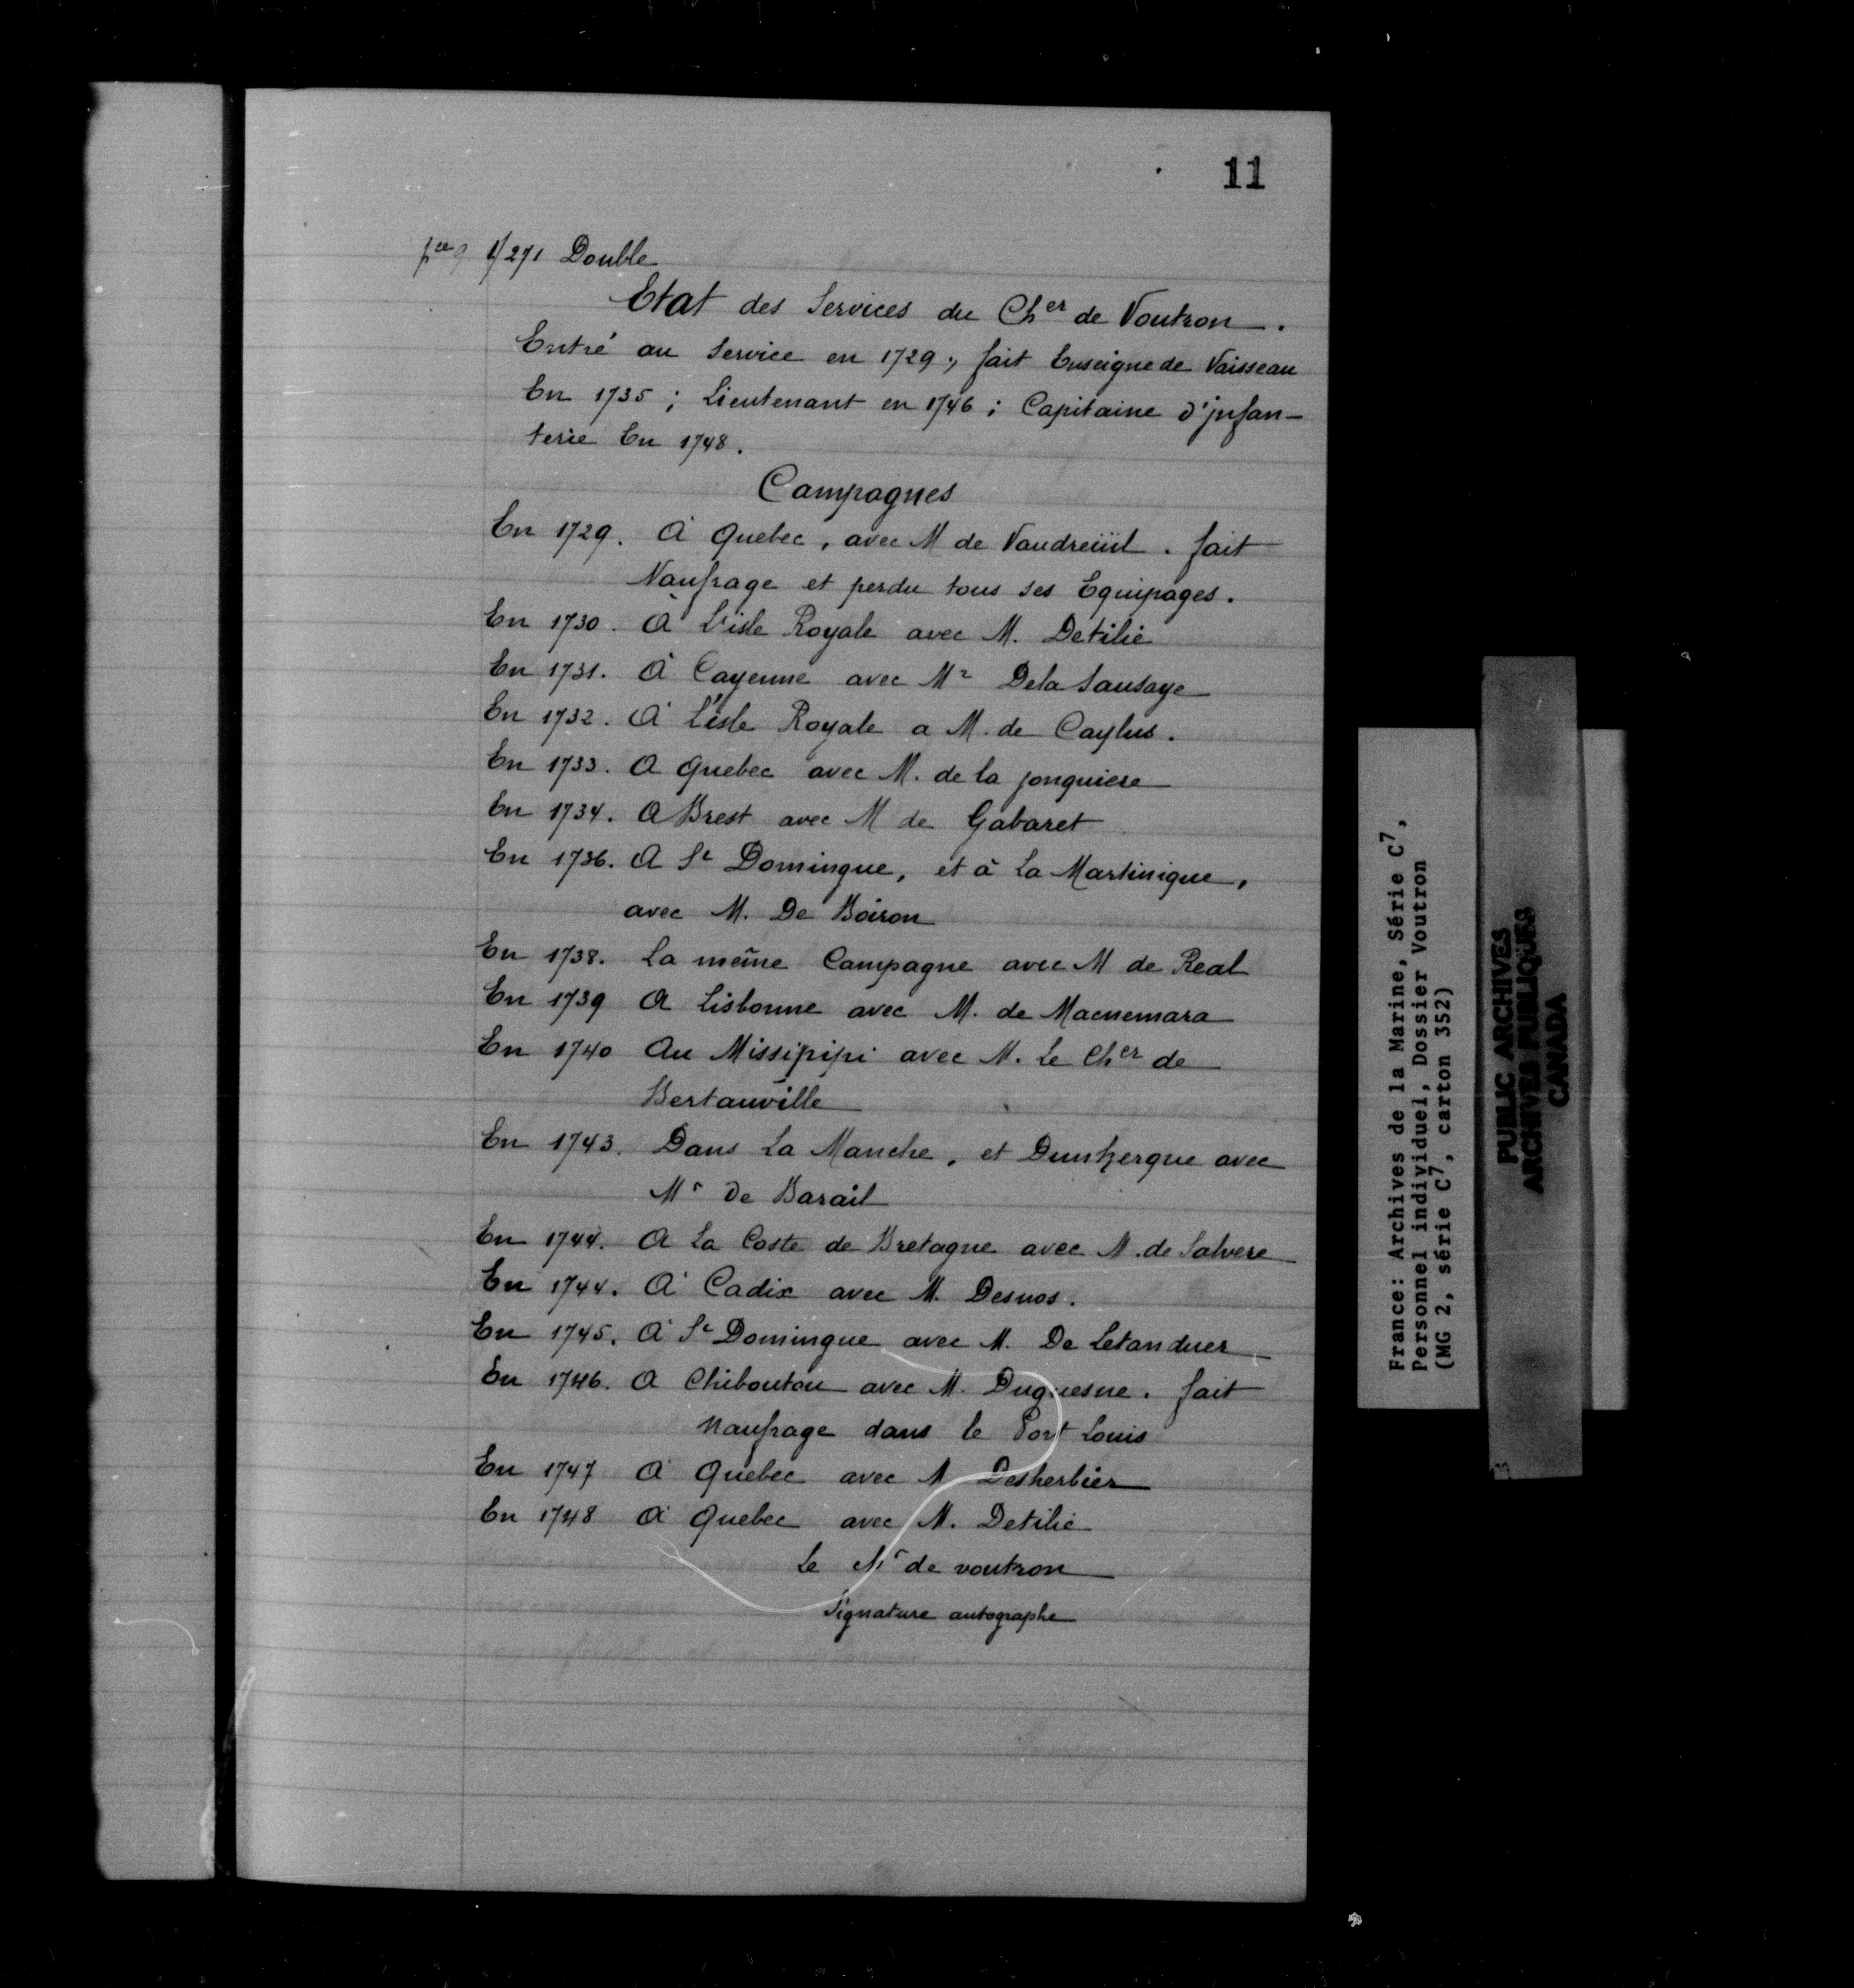 11
1/271 Double
Etat des Services du Cher de Voutron.
Entré au Service en 1729; fait Enseigne de Vaisseau
En 1735; Lieutenant en 1746; Capitaine d'jnfan-
terie En 1748.
Campagnes
En 1729. A Quebec, avec M de Vaudreüil. fait
Naufrage et perdu tous ses Equipages.
En 1730. A L'isle Royale avec M. Detilié
En 1731. A Cayenne avec Mr Dela Sausaye
En 1732. A L'isle Royale a M. de Caylus.
En 1733. A Quebec avec M. de la jonquiere
En 1734. A Brest avec M de Gabaret
En 1736. A St Domingue, et à La Martinique,
avec M. De Boiron
En 1738. La même Campagne avec M de Real
En 1739 A Lisbonne avec M. de Macnemara
En 1740 Au Missipipi avec M. Le Cher de
Bertauville
En 1743. Dans La Manche, et Dunkerque avec
Mr De Barail
En 1744. A La Coste de Bretagne avec M. de Salvere
En 1744. A Cadix avec M. Desnos.
En 1745. A St Domingue avec M. De Letanduer
En 1746. A Chiboutou avec M. Duquesne. fait
Naufrage dans le Port Louis
En 1747 A Quebec avec M Desherbier
En 1748 A Quebec avec M. Detilié
Le Mr de voutron
Signature autographe
France: Archives de la Marine, Série C7,
Personnel individuel, Dossier Voutron
(MG 2, série C7, carton 352)
PUBLIC ARCHIVES
ARCHIVES PUBLIQUES
CANADA